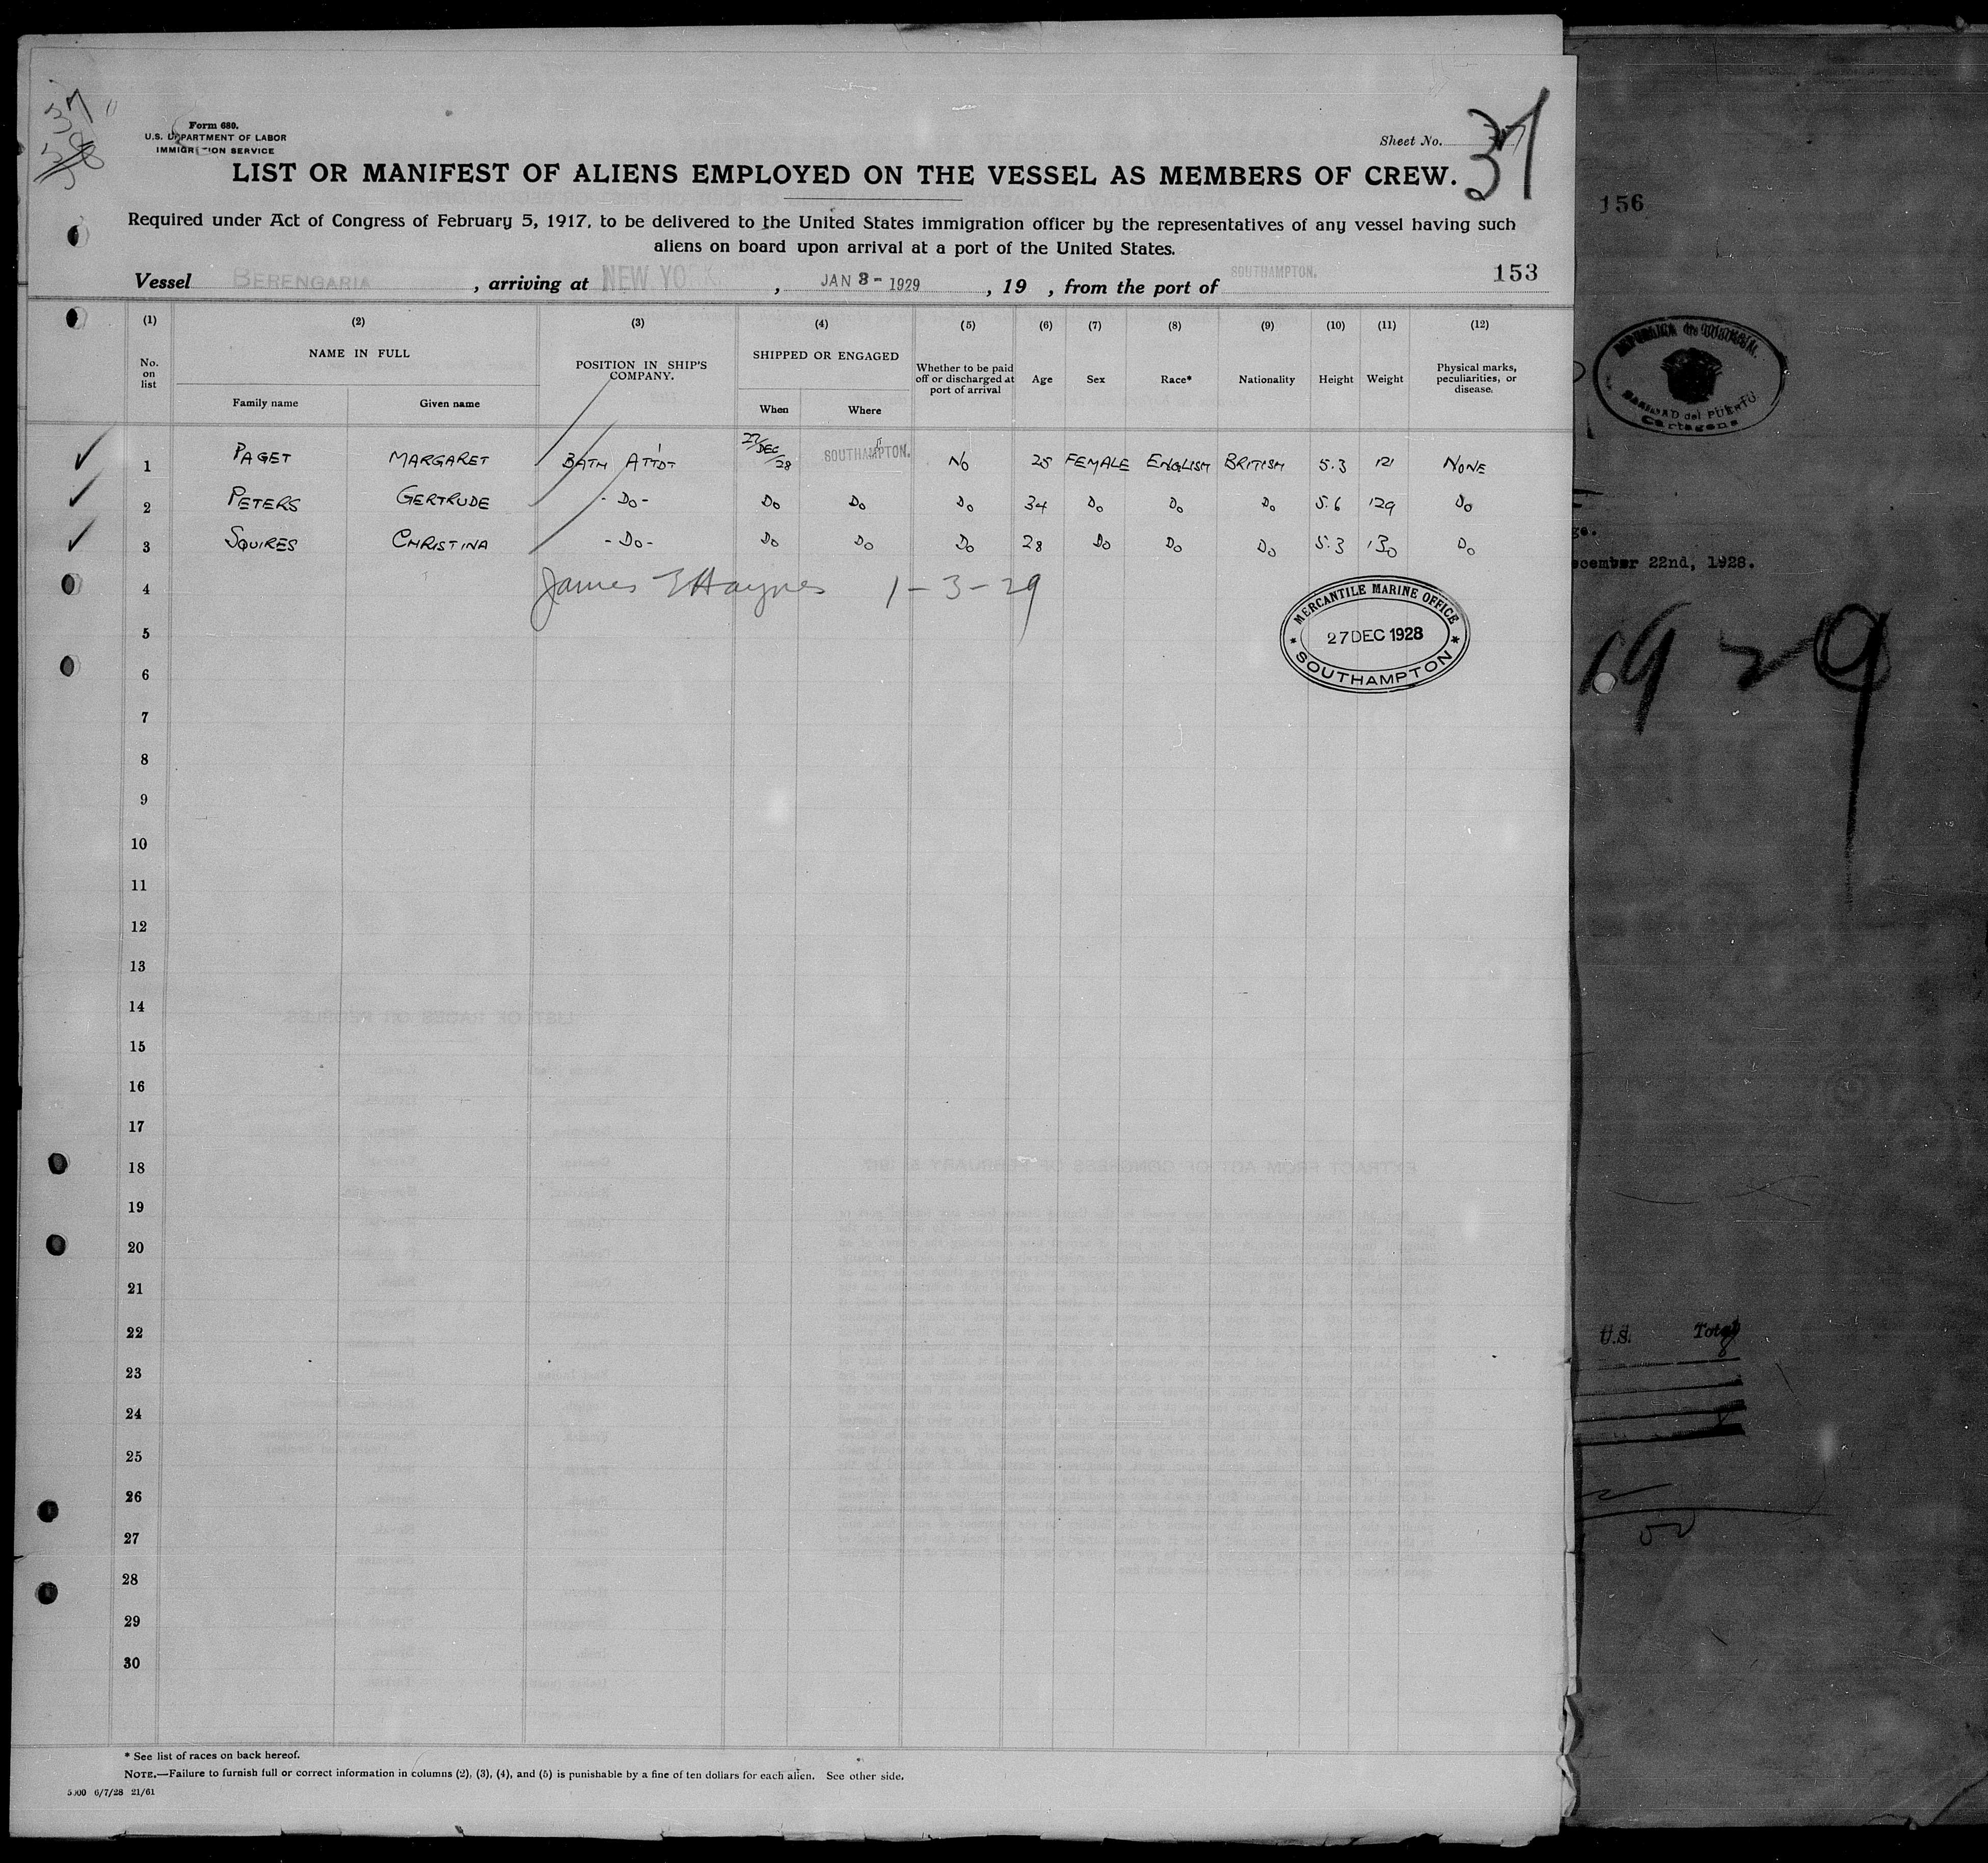 Form 680.
U.S. DEPARTMENT OF LABOR
IMMIGRATION SERVICE
Sheet No. 37
LIST OR MANIFEST OF ALIENS EMPLOYED ON THE VESSEL AS MEMBERS OF CREW.
Required under Act of Congress of February 5, 1917, to be delivered to the United States immigration officer by the representatives of any vessel having such
aliens on board upon arrival at a port of the United States.
153
Vessel BERENGARIA, arriving at NEW YORK, JAN 3- 1929, 19 , from the port of SOUTHAMPTON.
(1) (2) (3) (4) (5) (6) (7) (8) (9) (10) (11) (12)
No. on list NAME IN FULL POSITION IN SHIP'S COMPANY. SHIPPED OR ENGAGED Whether to be paid off or discharged at port of arrival Age Sex Race* Nationality Height Weight Physical marks, peculiarities, or disease.
Family name Given name When Where
1 PAGET MARGARET BATH ATTDT 27/DEC/28 SOUTHAMPTON. NO 25 FEMALE ENGLISH BRITISH 5.3 121 NONE
2 PETERS GERTRUDE -DO- DO DO DO 34 DO DO DO 5.6 129 DO
3 SQUIRES CHRISTINA -DO- DO DO DO 28 DO DO DO 5.3 130 DO
4 James E Haynes 1-3-29
MERCANTILE MARINE OFFICE
27 DEC 1928
SOUTHAMPTON
5
6
7
8
9
10
11
12
13
14
15
16
17
18
19
20
21
22
23
24
25
26
27
28
29
30
* See list of races on back hereof.
NOTE.—Failure to furnish full or correct information in columns (2), (3), (4), and (5) is punishable by a fine of ten dollars for each alien. See other side.
5000 6/7/28 21/61
156
del PUERTO
Cartagena
December 22nd, 1928.
1929
U.S. Total